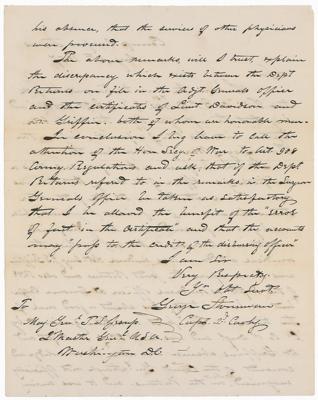 his absence, that the services of other physicians
were procured.
The above remarks, will I trust, explain
the discrepancy which exists between the Dept
Returns on file in the Adjt. Generals officer
and the certificates of Lieut Davidson and
Dr. Griffin. both of whom are honorable men.
In conclusion I beg leave to call the
attention of the Hon. Secy. of War, to Art. 908
Army Regulations and ask, that if the Dept
Returns referred to in the remarks, in the Surgeon
Generals office be taken as satisfactory
that I be allowed the benefit of the "error
of fact in the Certificate" and that the accounts
may "pass to the credit of the disbursing officer"
I am Sir
Very Respecty.
Yr. Obt. Servt.
George Stoneman
Capt. 2d Cavlry
To
Maj Genl. T. S. Jesup
Qr Master Genl. U S A.
Washington D.C.